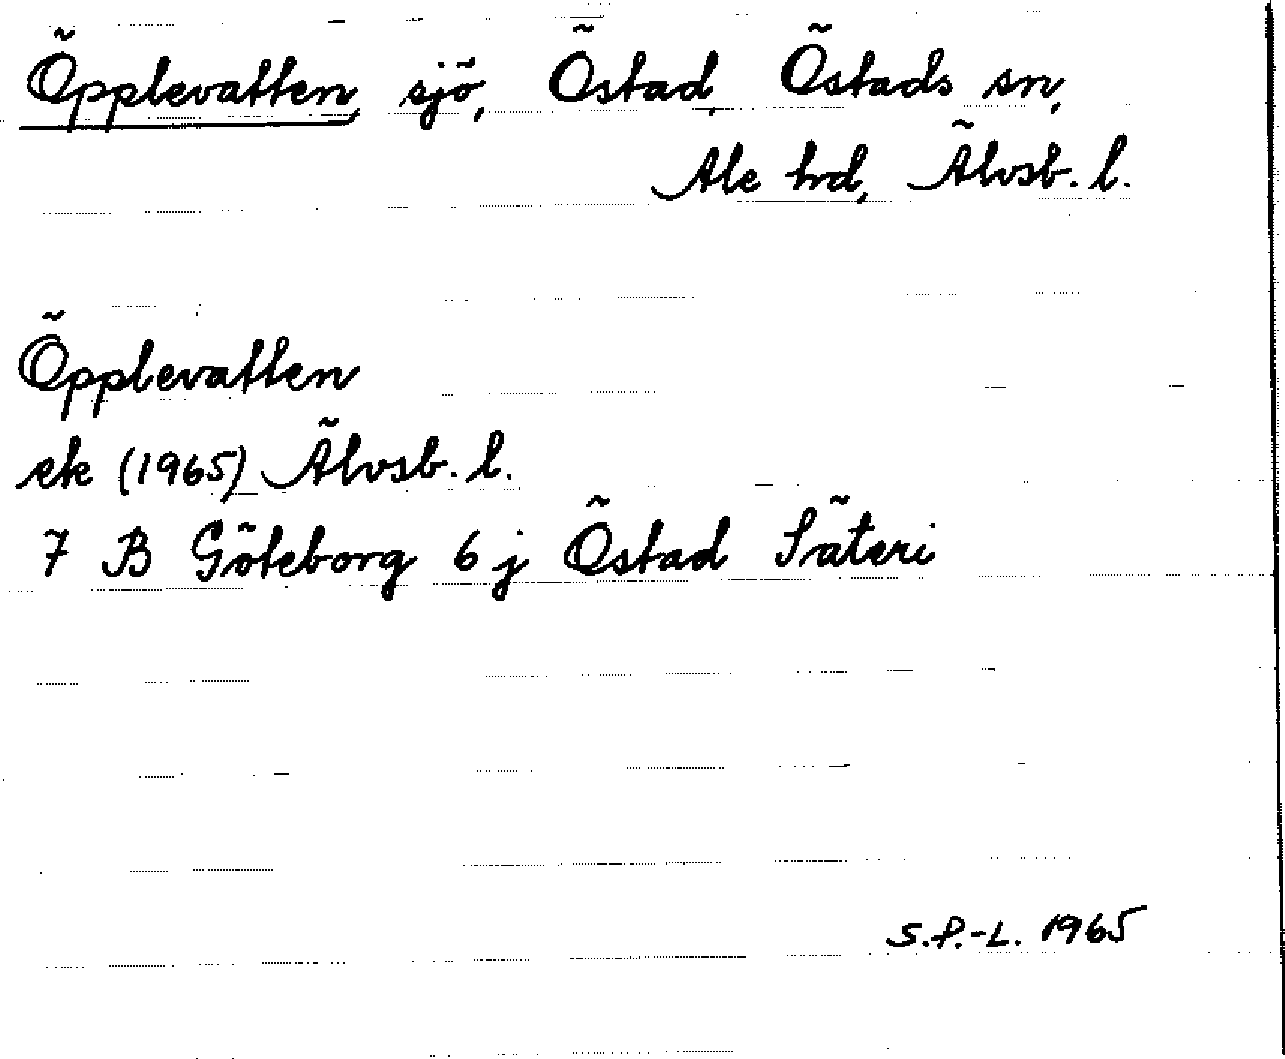 Öpplevatten, sjö, Östad, Östads sn,
Ale hd, Älvsb. l.
Öpplevatten
ek (1965) Älvsb. l.
7 B Göteborg 6 j Östad Säteri
S.P.-L. 1965